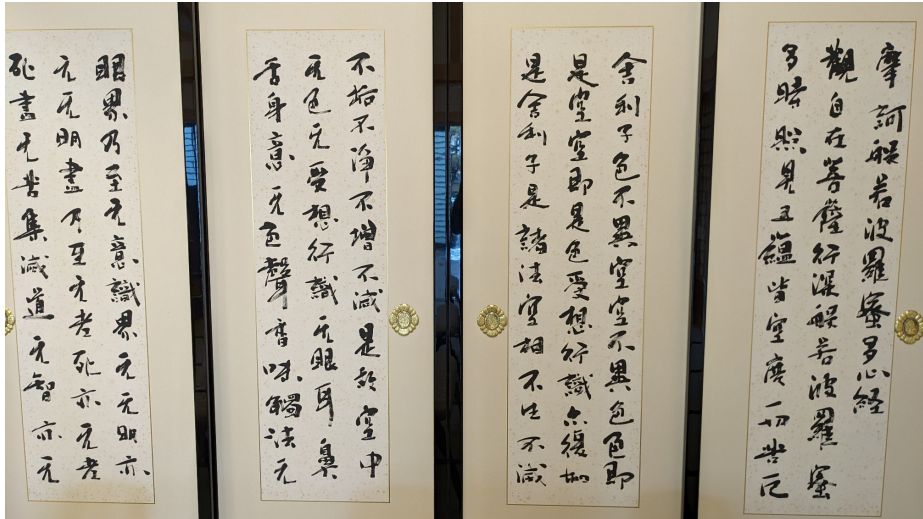 摩訶般若波羅蜜多心経
觀自在菩薩行深般若波羅蜜
多時照見五蘊皆空度一切苦厄
舍利子色不異空空不異色色即
是空空即是色受想行識亦復如
是舍利子是諸法空相不生不滅
不垢不淨不增不減是故空中
无色无受想行識无眼耳鼻
舌身意无色聲香味觸法无
眼界乃至无意識界无无明亦
无无明盡乃至无老死亦无老
死盡无苦集滅道无智亦无